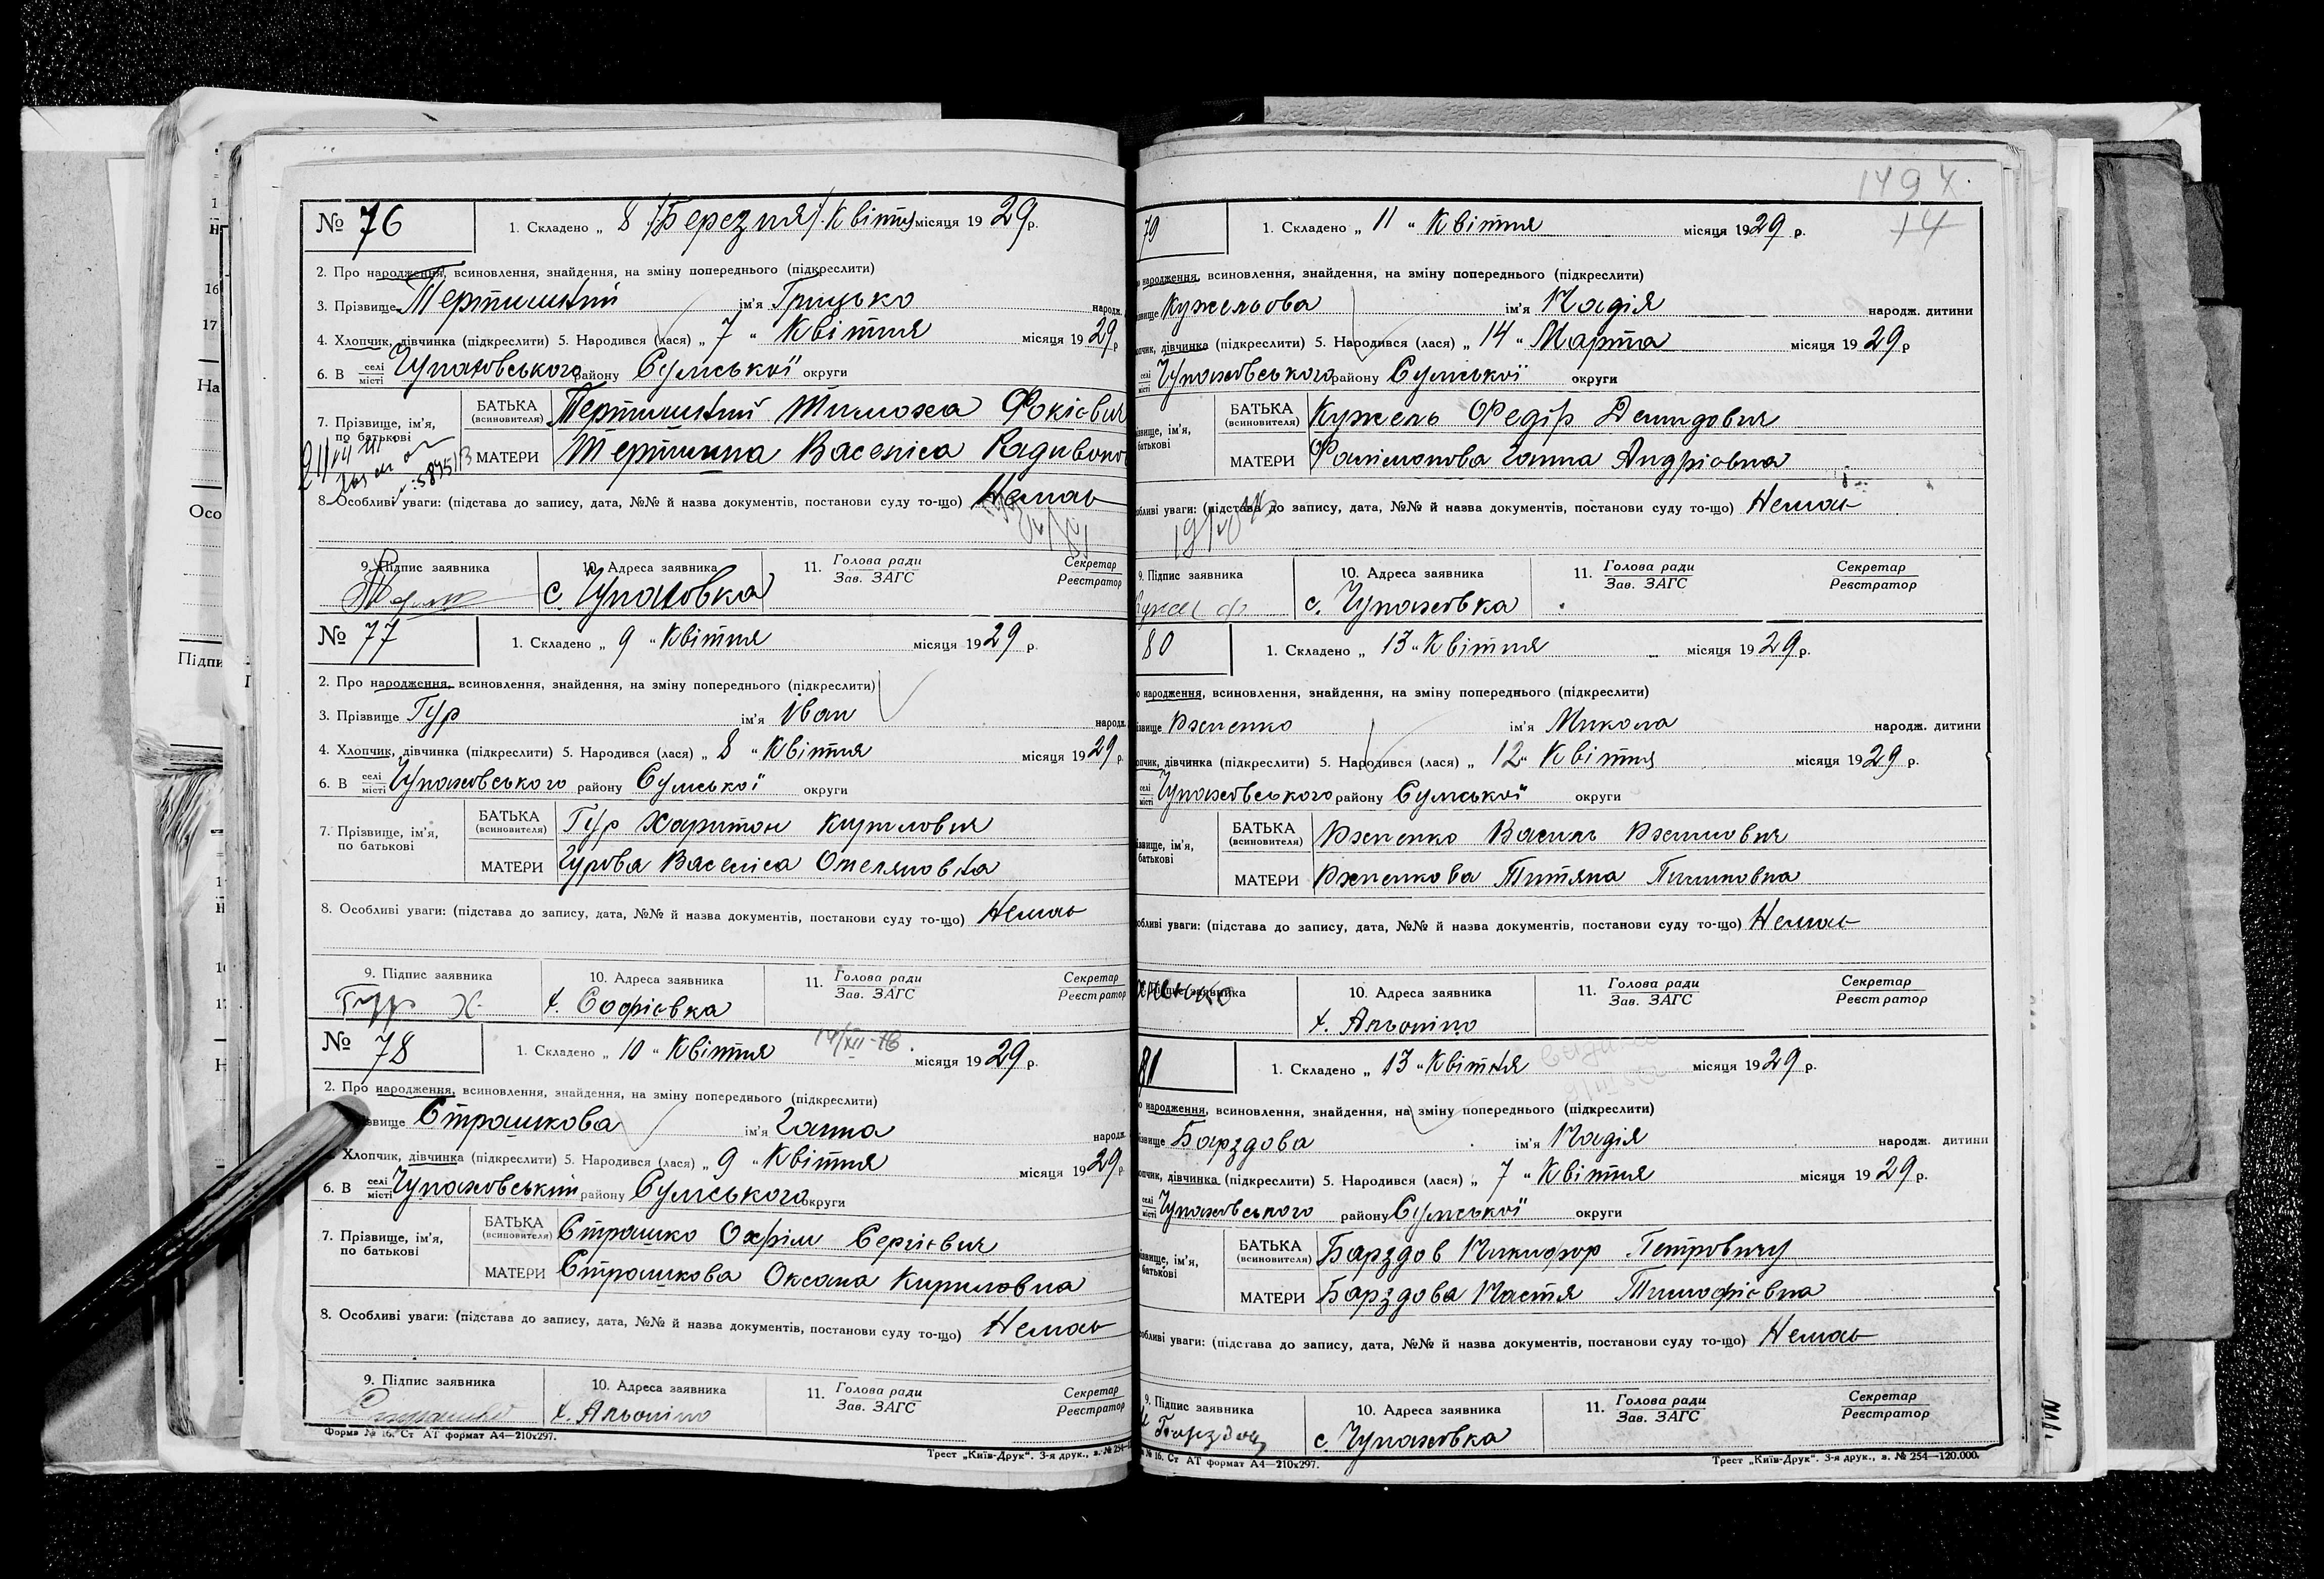 № 76 1. Складено „ 8 /Березня/ Квітня місяця 1929 р.
2. Про народження, всиновлення, знайдення, на зміну попереднього (підкреслити)
3. Прізвище ім'я Грицько народж.
4. Хлопчик, дівчинка (підкреслити) 5. Народився (лася) „ 7 " Квітня місяця 1929 р
6. В селі місті району Сумської округи
7. Прізвище, ім'я, по батькові
БАТЬКА (всиновителя) Тимоха Фокієвич
МАТЕРИ Василіса
8. Особливі уваги: (підстава до запису, дата, №№ й назва документів, постанови суду то-що) Немає
9. Підпис заявника 10. Адреса заявника 11. Голова ради Зав. ЗАГС Секретар Реєстратор
с. Чупаховка
№ 77 1. Складено „ 9 " Квітня місяця 1929 р.
2. Про народження, всиновлення, знайдення, на зміну попереднього (підкреслити)
3. Прізвище Гур ім'я Іван народж.
4. Хлопчик, дівчинка (підкреслити) 5. Народився (лася) „ 8 " Квітня місяця 1929 р.
6. В селі місті Чупаховського району Сумської округи
7. Прізвище, ім'я, по батькові
БАТЬКА (всиновителя) Гур Харитон Кирилович
МАТЕРИ Гурова Василіса Омеляновна
8. Особливі уваги: (підстава до запису, дата, №№ й назва документів, постанови суду то-що) Немає
9. Підпис заявника 10. Адреса заявника 11. Голова ради Зав. ЗАГС Секретар Реєстратор
Гур Х. х. Софієвка
14/XII-76.
№ 78 1. Складено „ 10 " Квітня місяця 1929 р.
2. Про народження, всиновлення, знайдення, на зміну попереднього (підкреслити)
звище Страшкова ім'я Ганна народж.
Хлопчик, дівчинка (підкреслити) 5. Народився (лася) „ 9 " Квітня місяця 1929 р
6. В селі місті Чупаховський району Сумського округи
7. Прізвище, ім'я, по батькові
БАТЬКА (всиновителя) Страшко Охрім Сергієвич
МАТЕРИ Страшкова Оксана Кириловна
8. Особливі уваги: (підстава до запису, дата, №№ й назва документів, постанови суду то-що) Немає
9. Підпис заявника 10. Адреса заявника 11. Голова ради Зав. ЗАГС Секретар Реєстратор
Страшко
Форма № 16. Ст АТ формат А4—210х297.
Трест „Київ-Друк". 3-я друк., з. № 254—
14
79 1. Складено „ 11 " Квітня місяця 1929 р.
народження, всиновлення, знайдення, на зміну попереднього (підкреслити)
Кужельова ім'я Надія народж. дитини
дівчинка (підкреслити) 5. Народився (лася) „ 14 " Марта місяця 1929 р
селі місті Чупаховського району Сумської округи
БАТЬКА (всиновителя) Кужель Федір Демидович
МАТЕРИ Філімонова Ганна Андрієвна
уваги: (підстава до запису, дата, №№ й назва документів, постанови суду то-що) Немає
9. Підпис заявника 10. Адреса заявника 11. Голова ради Зав. ЗАГС Секретар Реєстратор
с. Чупаховка
80 1. Складено „ 13 " Квітня місяця 1929 р.
народження, всиновлення, знайдення, на зміну попереднього (підкреслити)
ім'я Микола народж. дитини
дівчинка (підкреслити) 5. Народився (лася) „ 12 " Квітня місяця 1929 р.
селі місті Чупаховського району Сумської округи
БАТЬКА (всиновителя) Василь
МАТЕРИ Титяна
уваги: (підстава до запису, дата, №№ й назва документів, постанови суду то-що) Немає
заявника 10. Адреса заявника 11. Голова ради Зав. ЗАГС Секретар Реєстратор
81 1. Складено „ 13 " Квітня місяця 1929 р.
народження, всиновлення, знайдення, на зміну попереднього (підкреслити)
Барздова ім'я Надія народж. дитини
дівчинка (підкреслити) 5. Народився (лася) „ 7 " Квітня місяця 1929 р.
селі місті Чупаховського району Сумської округи
БАТЬКА (всиновителя) Барздов Никифор Петровичу
МАТЕРИ Барздова Настя Тимофієвна
уваги: (підстава до запису, дата, №№ й назва документів, постанови суду то-що) Немає
9. Підпис заявника 10. Адреса заявника 11. Голова ради Зав. ЗАГС Секретар Реєстратор
с. Чупаховка
№ 16. Ст АТ формат А4—210х297.
Трест „Київ-Друк". 3-я друк., з. № 254—120.000.